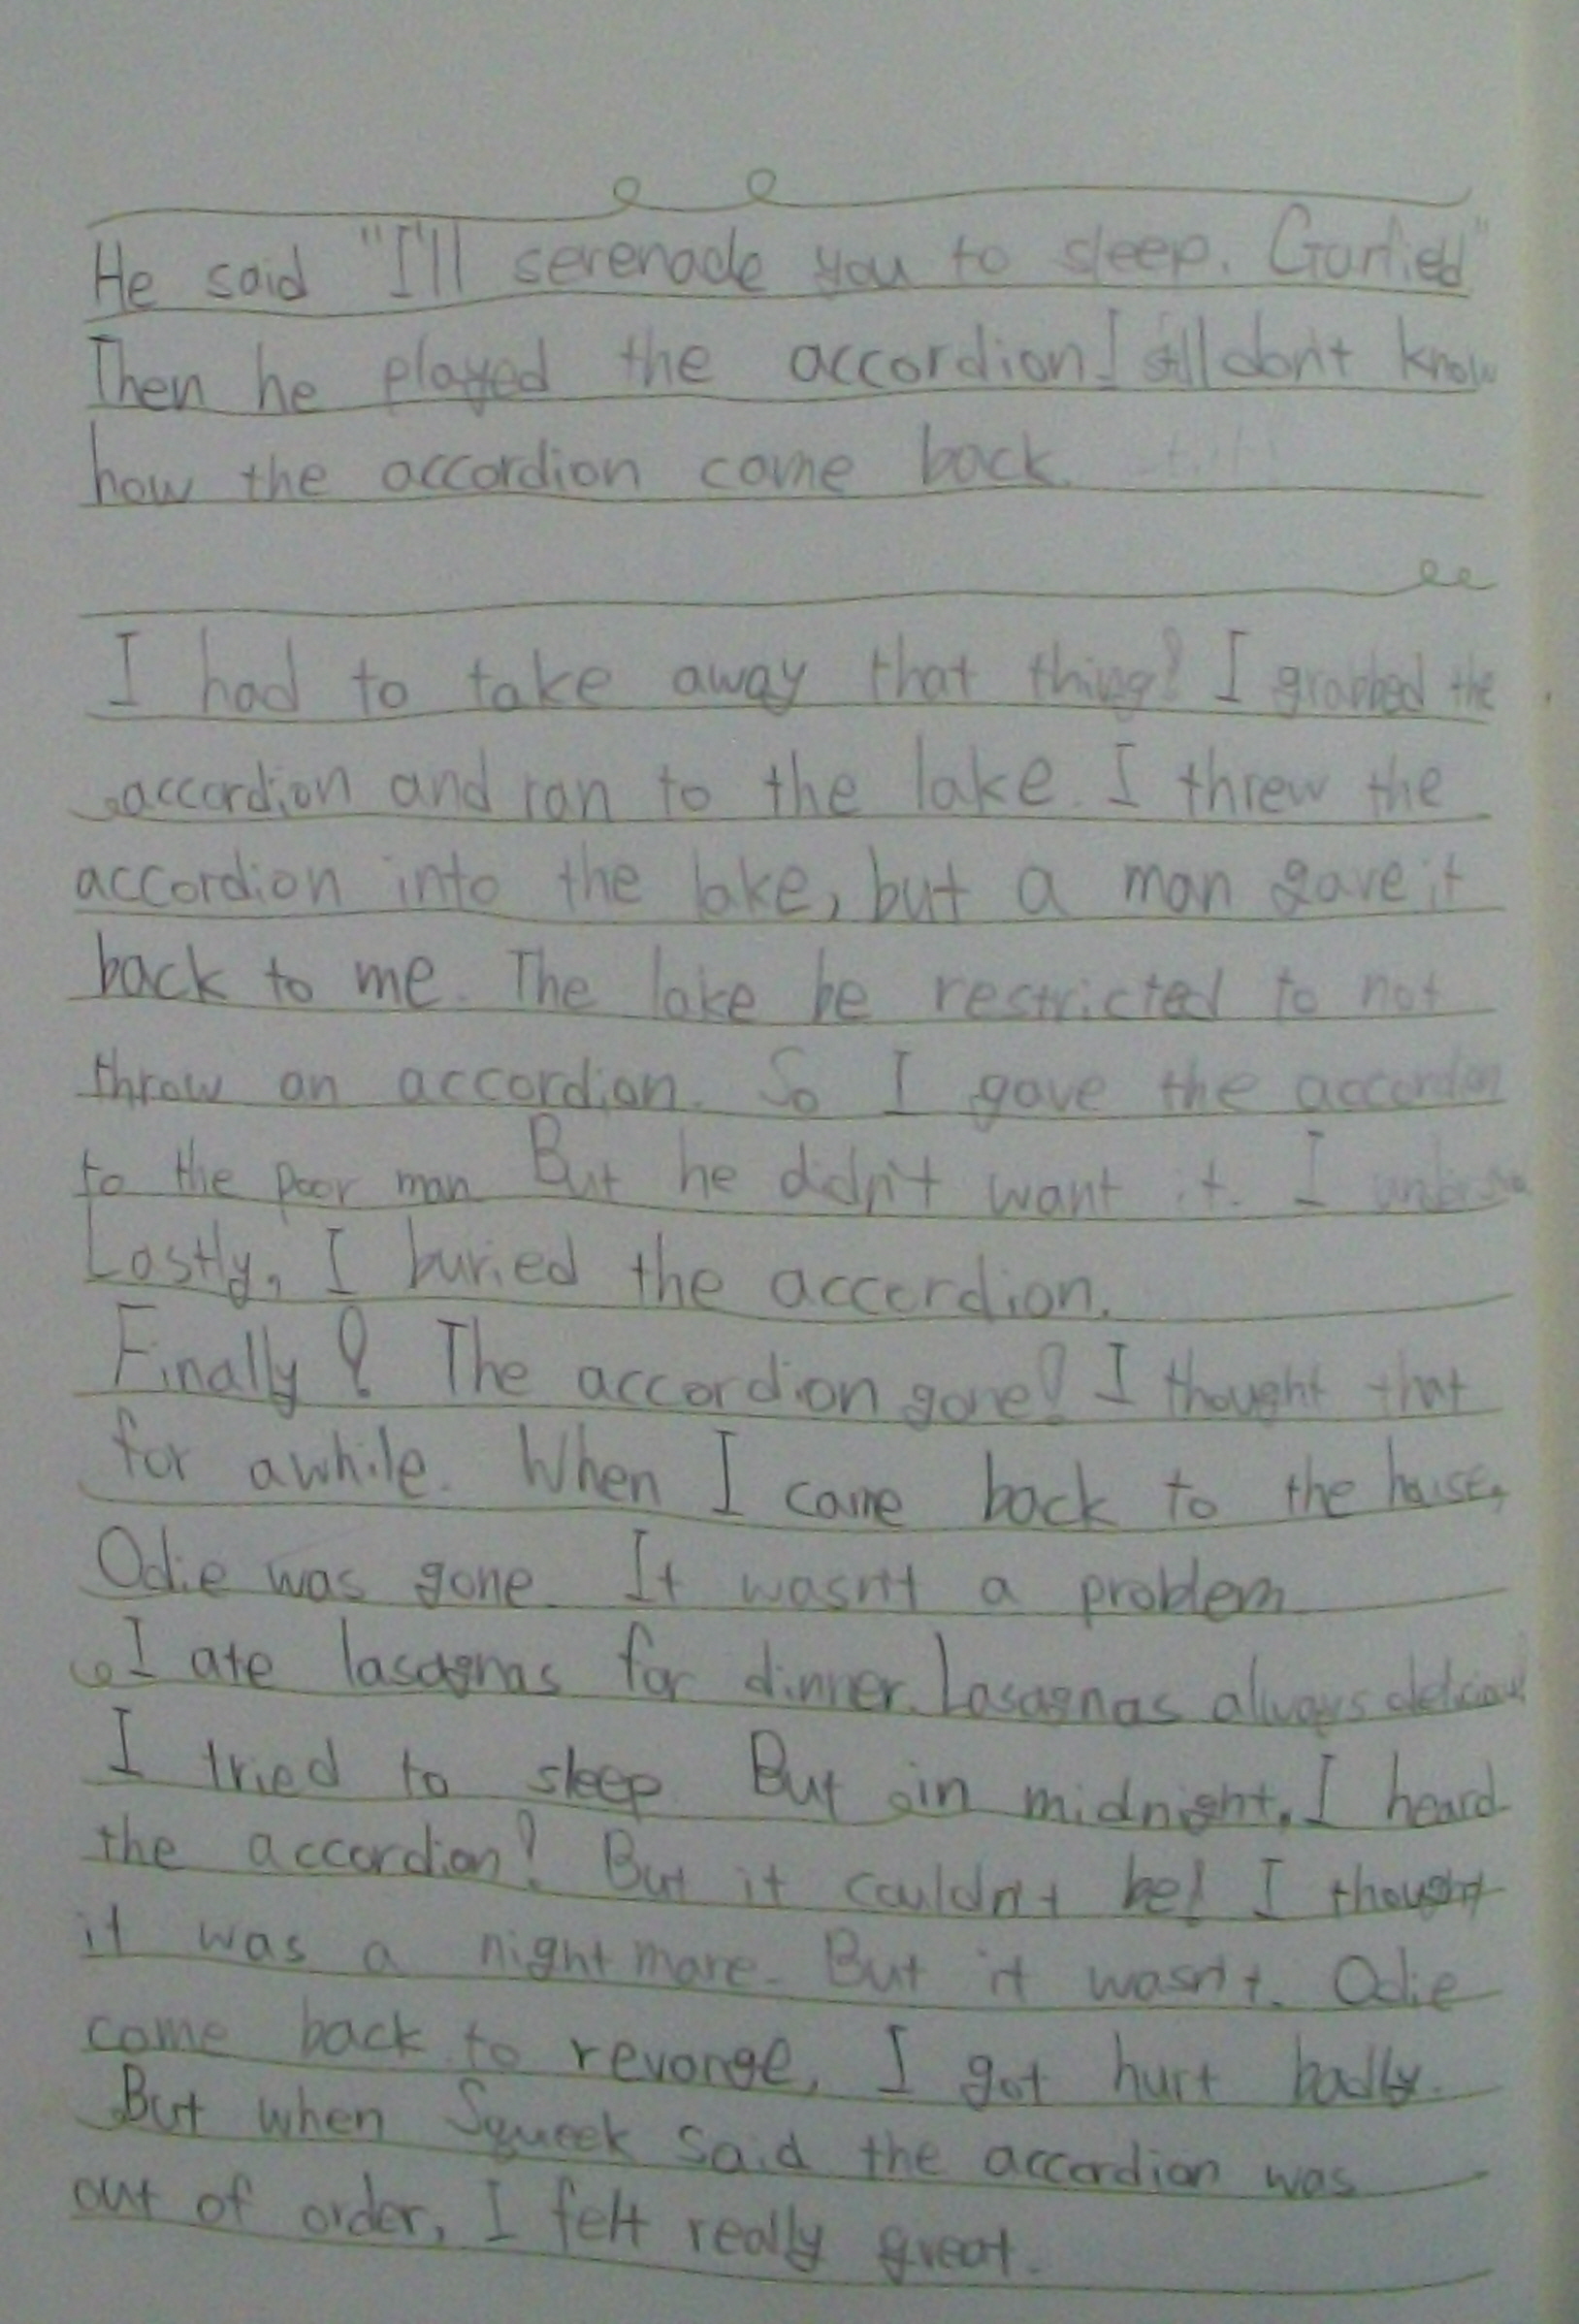 He said "I'll serenade you to sleep. Garfied"
Then he played the accordion! I still don't know
how the accordion came back.
I had to take away that thing! I grabbed the
accordion and ran to the lake. I threw the
accordion into the lake, but a man gave it
back to me. The lake be restricted to not
throw an accordion. So I gave the accordion
to the poor man But he didn't want it. I
Lastly, I buried the accordion.
Finally! The accordion gone! I thought that
for awhile. When I came back to the house,
Odie was gone. It wasn't a problem
I ate lasagnas for dinner. Lasagnas always delicious
I tried to sleep But in midnight, I heard
the accordion! But it couldn't be! I thought
it was a nightmare. But it wasn't. Odie
come back to revonge, I got hurt badly.
But when Squeek said the accordion was
out of order, I felt really great.